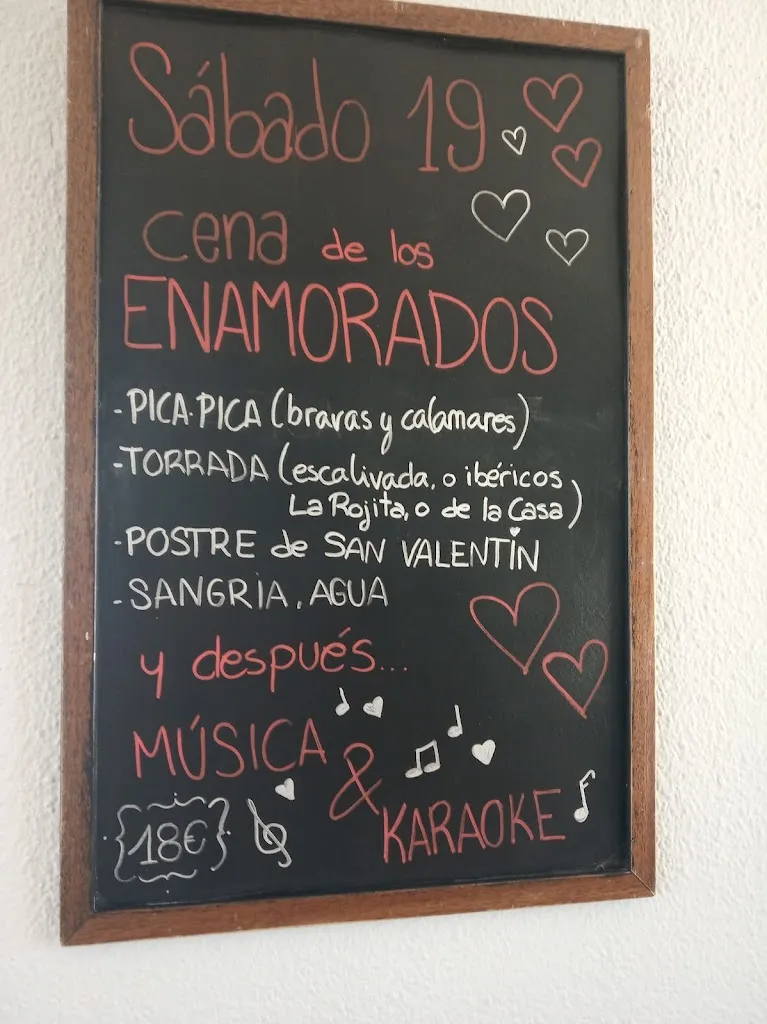 Sábado 19
cena de los
ENAMORADOS
- PICA-PICA (bravas y calamares)
- TORRADA (escalivada, o ibéricos
La Rojita, o de la Casa)
- POSTRE de SAN VALENTÍN
- SANGRIA, AGUA
y después...
MÚSICA
&
KARAOKE
{18€}